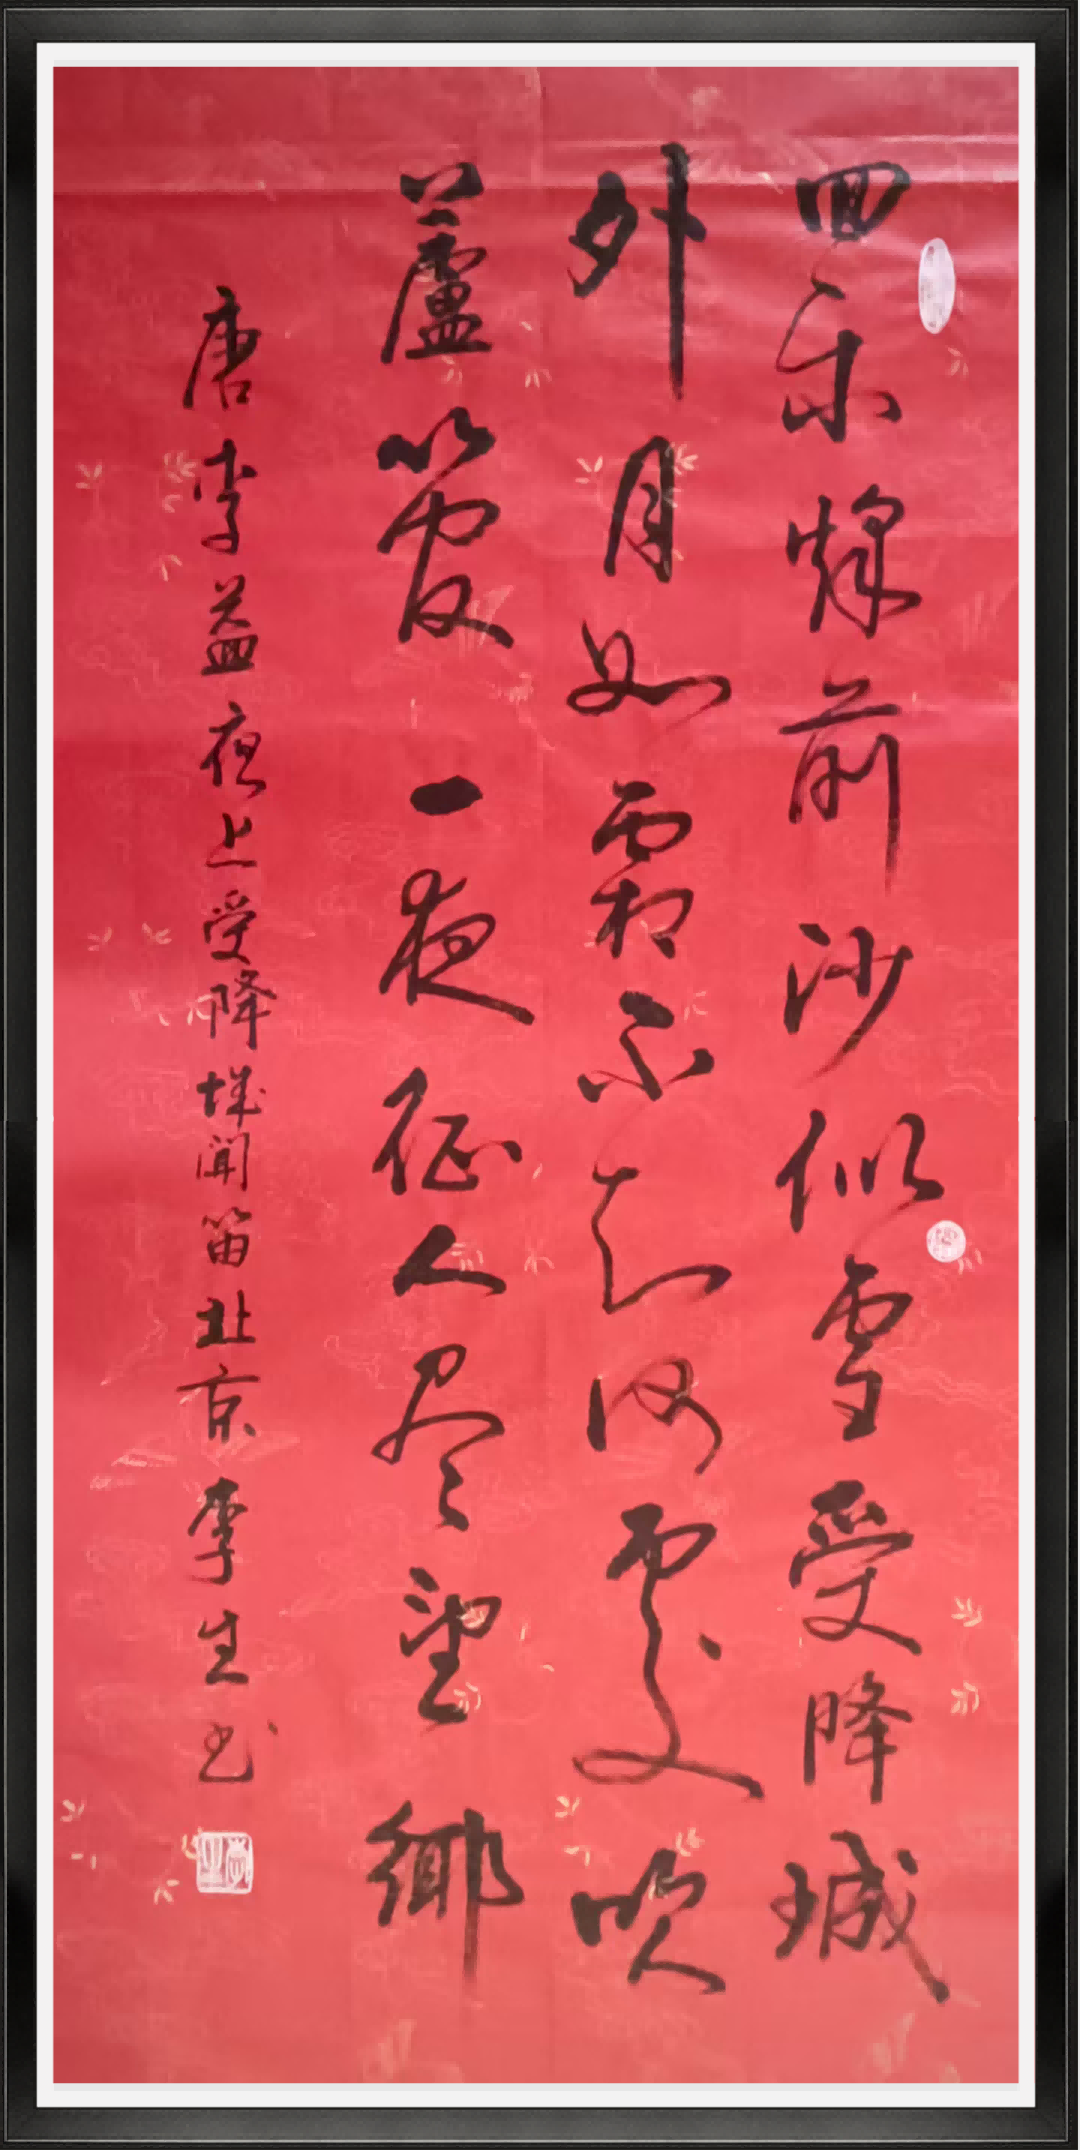 回乐烽前沙似雪受降城
外月如霜不知何處吹
蘆管一夜征人尽望鄉
唐李益夜上受降城闻笛北京李生书